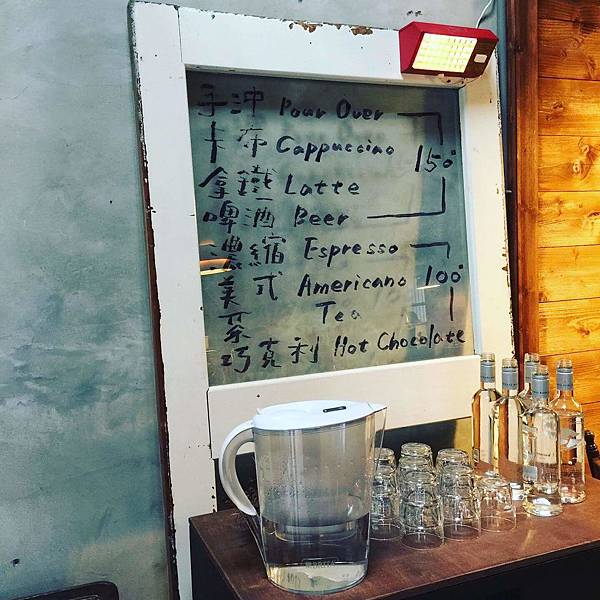 手沖 Pour Over
卡布 Cappuccino 150°
拿鐵 Latte
啤酒 Beer
濃縮 Espresso
美式 Americano 100°
茶 Tea
巧克利 Hot Chocolate
BRITA